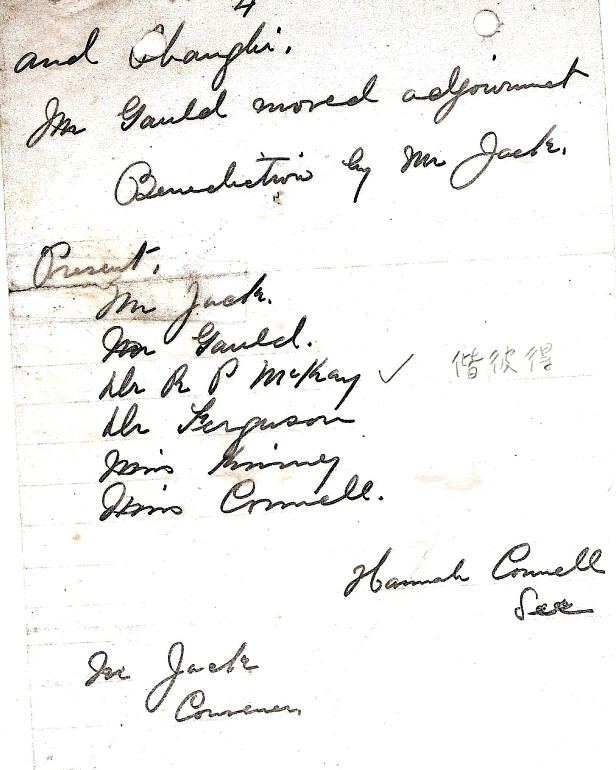 4
and Changhi.
Mr Gauld moved adjournment
Benediction by Mr Jack.
Present.
Mr Jack.
Mr Gauld.
Dr R P McKay ✓ 偕彼得
Dr Ferguson
Miss Kinney
Miss Connell.
Hannah Connell
Sec
Mr Jack
Convener